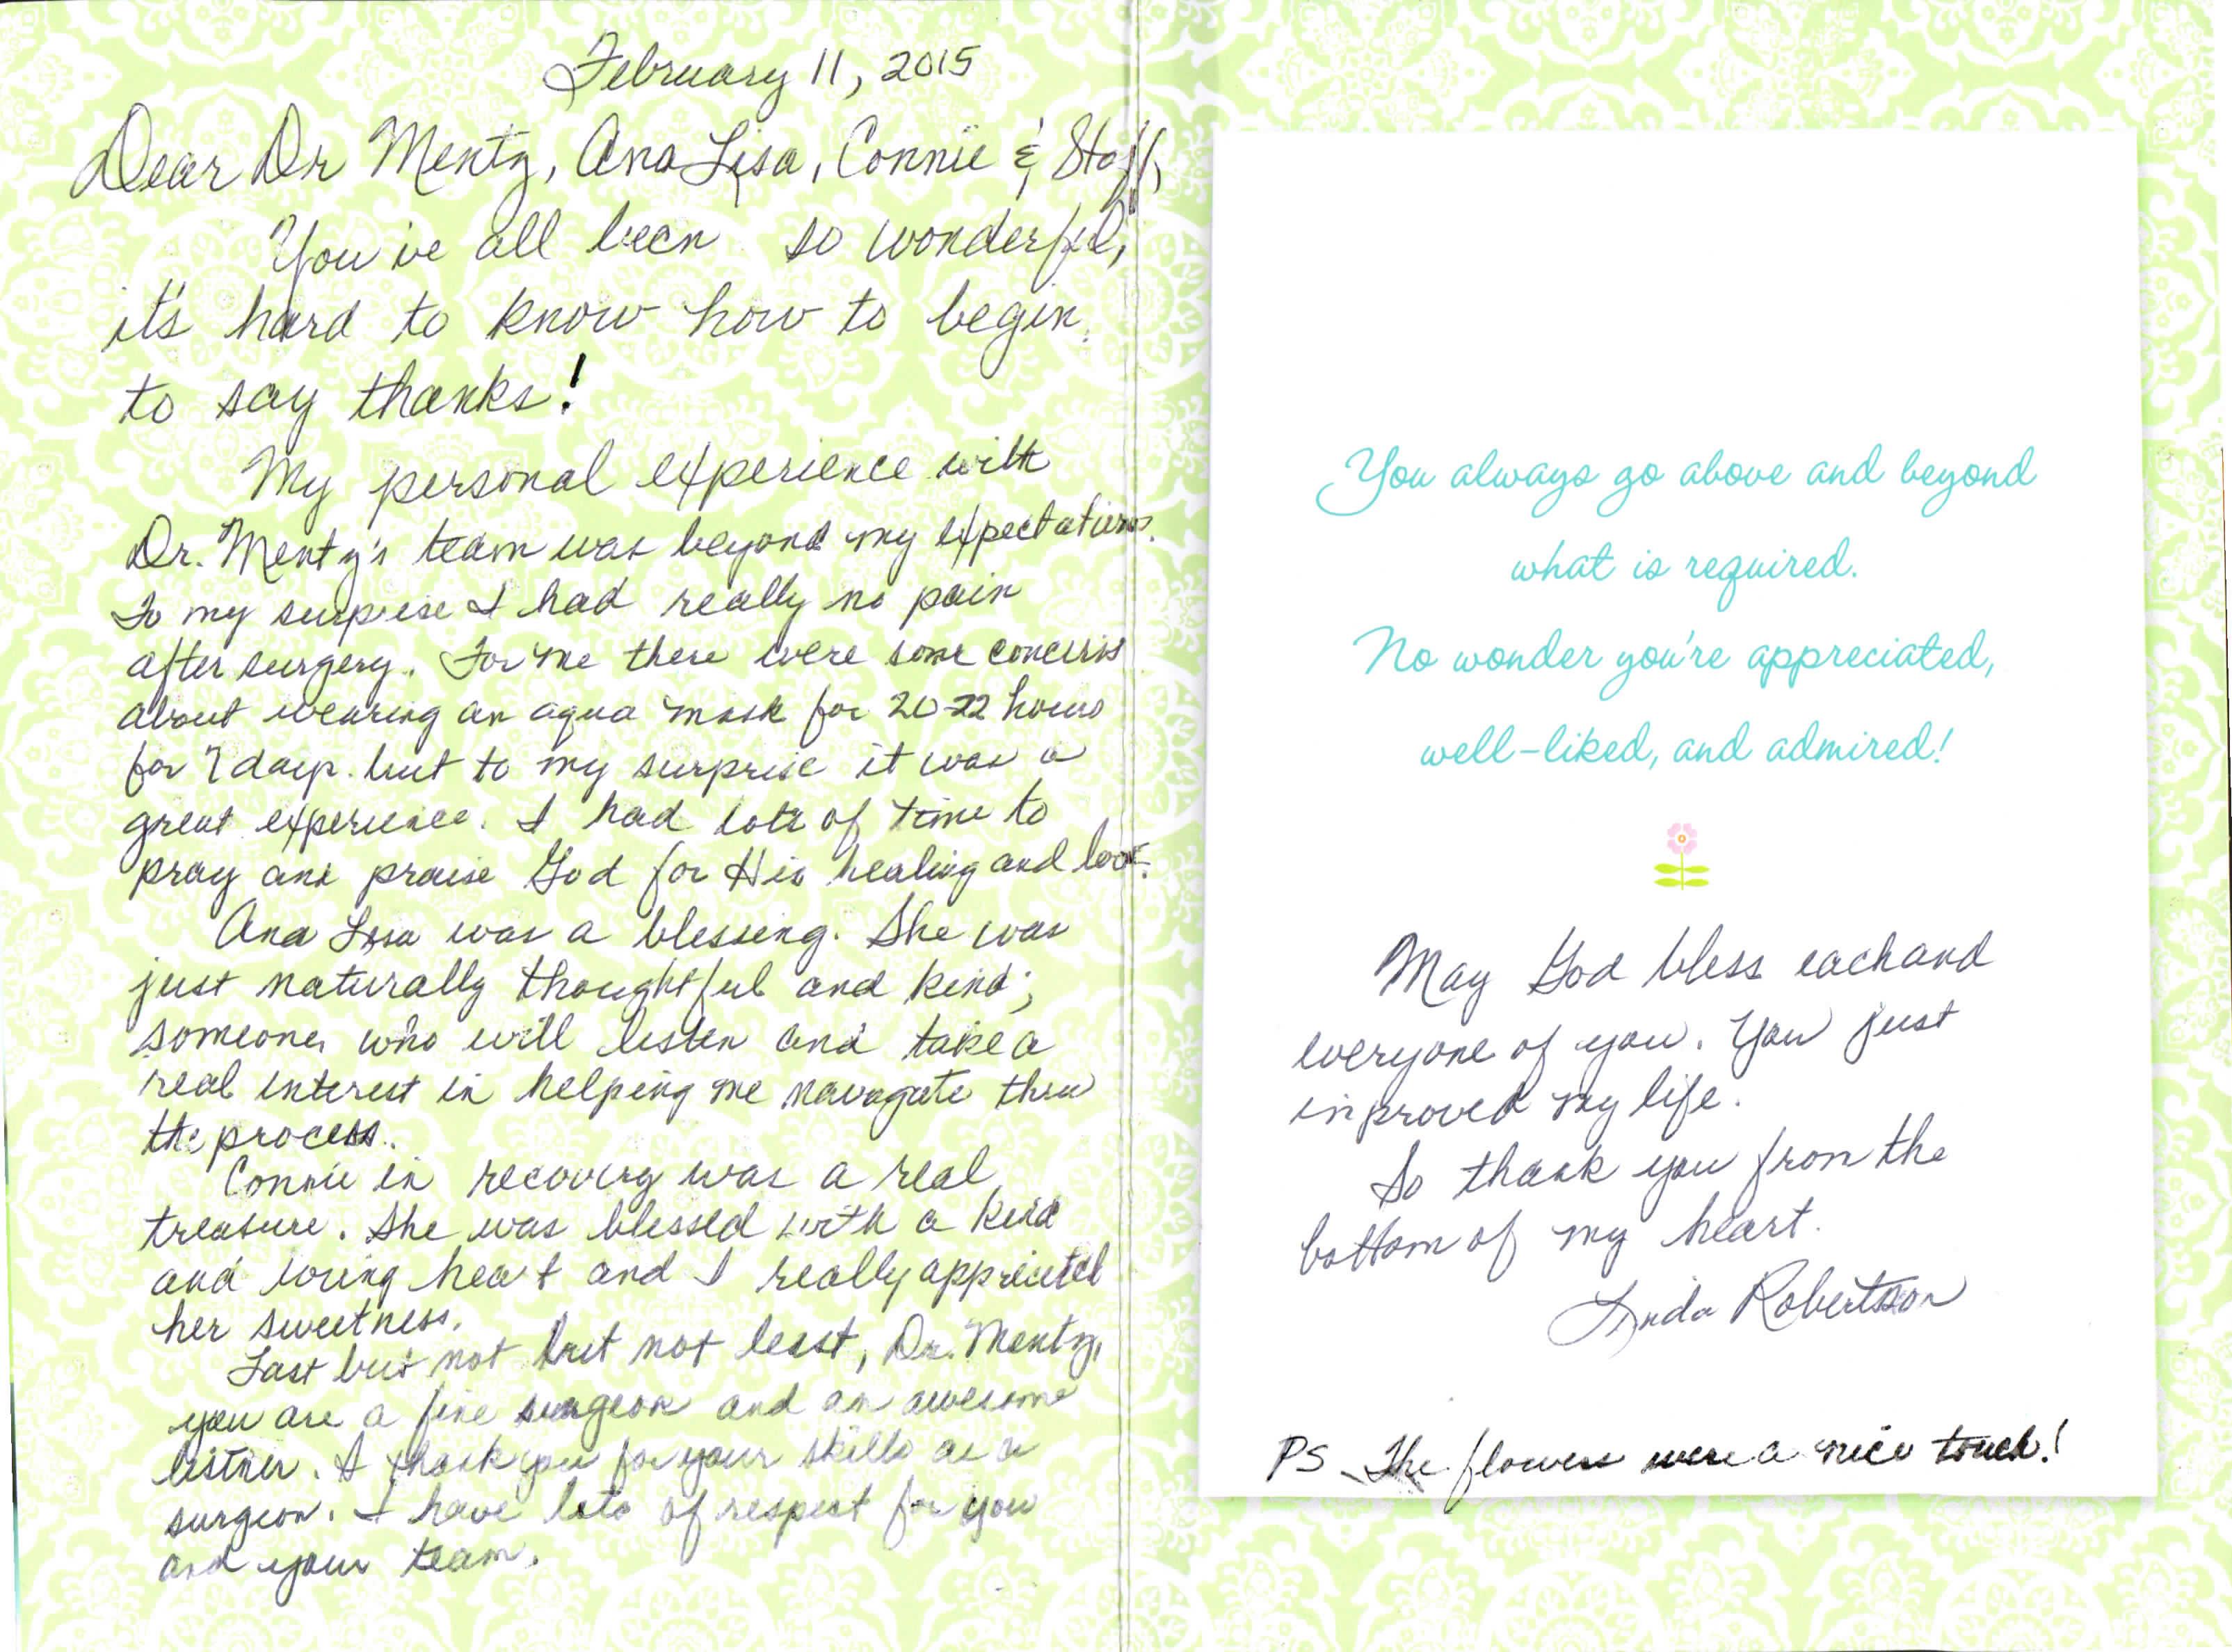 February 11, 2015
Dear Dr Mentz, Ana Lisa, Connie & Staff,
You've all been so wonderful,
it's hard to know how to begin
to say thanks!
My personal experience with
Dr. Mentz's team was beyond my expectations.
To my surprise I had really no pain
after surgery. For me there were some concerns
about wearing an aqua mask for 20-22 hours
for 7 days. but to my surprise it was a
great experience. I had lots of time to
pray and praise God for His healing and love.
Ana Lisa was a blessing. She was
just naturally thoughtful and kind;
someone who will listen and take a
real interest in helping me navagate thru
the process.
Connie in recovery was a real
treasure. She was blessed with a kind
and loving heart and I really appreciated
her sweetness.
Last but not but not least, Dr. Mentz,
you are a fine surgeon and an awesome
listner. I thank you for your skills as a
surgeon. I have lots of respect for you
and your team.
You always go above and beyond
what is required.
No wonder you're appreciated,
well-liked, and admired!
May God bless each and
everyone of you. You just
improved my life.
So thank you from the
bottom of my heart.
Linda Robertson
PS The flowers were a nice touch!